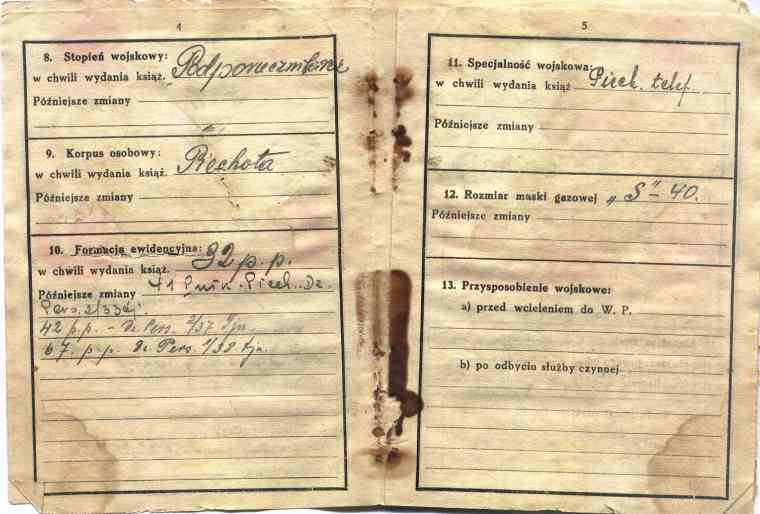 4
8. Stopień wojskowy:
w chwili wydania książ. Podporucznik
Późniejsze zmiany
9. Korpus osobowy:
w chwili wydania książ. Piechota
Późniejsze zmiany
10. Formacja ewidencyjna:
w chwili wydania książ. 32 p.p.
Późniejsze zmiany 41 Piech. Dz.
Pers. 2/33
42 p.p. - Dz. Pers. 2/37 tjn.
67. p.p. Dz. Pers. 1/38 tjn.
5
11. Specjalność wojskowa:
w chwili wydania książ Piech. telef.
Późniejsze zmiany
12. Rozmiar maski gazowej „S" - 40.
Późniejsze zmiany
13. Przysposobienie wojskowe:
a) przed wcieleniem do W. P.
b) po odbyciu służby czynnej